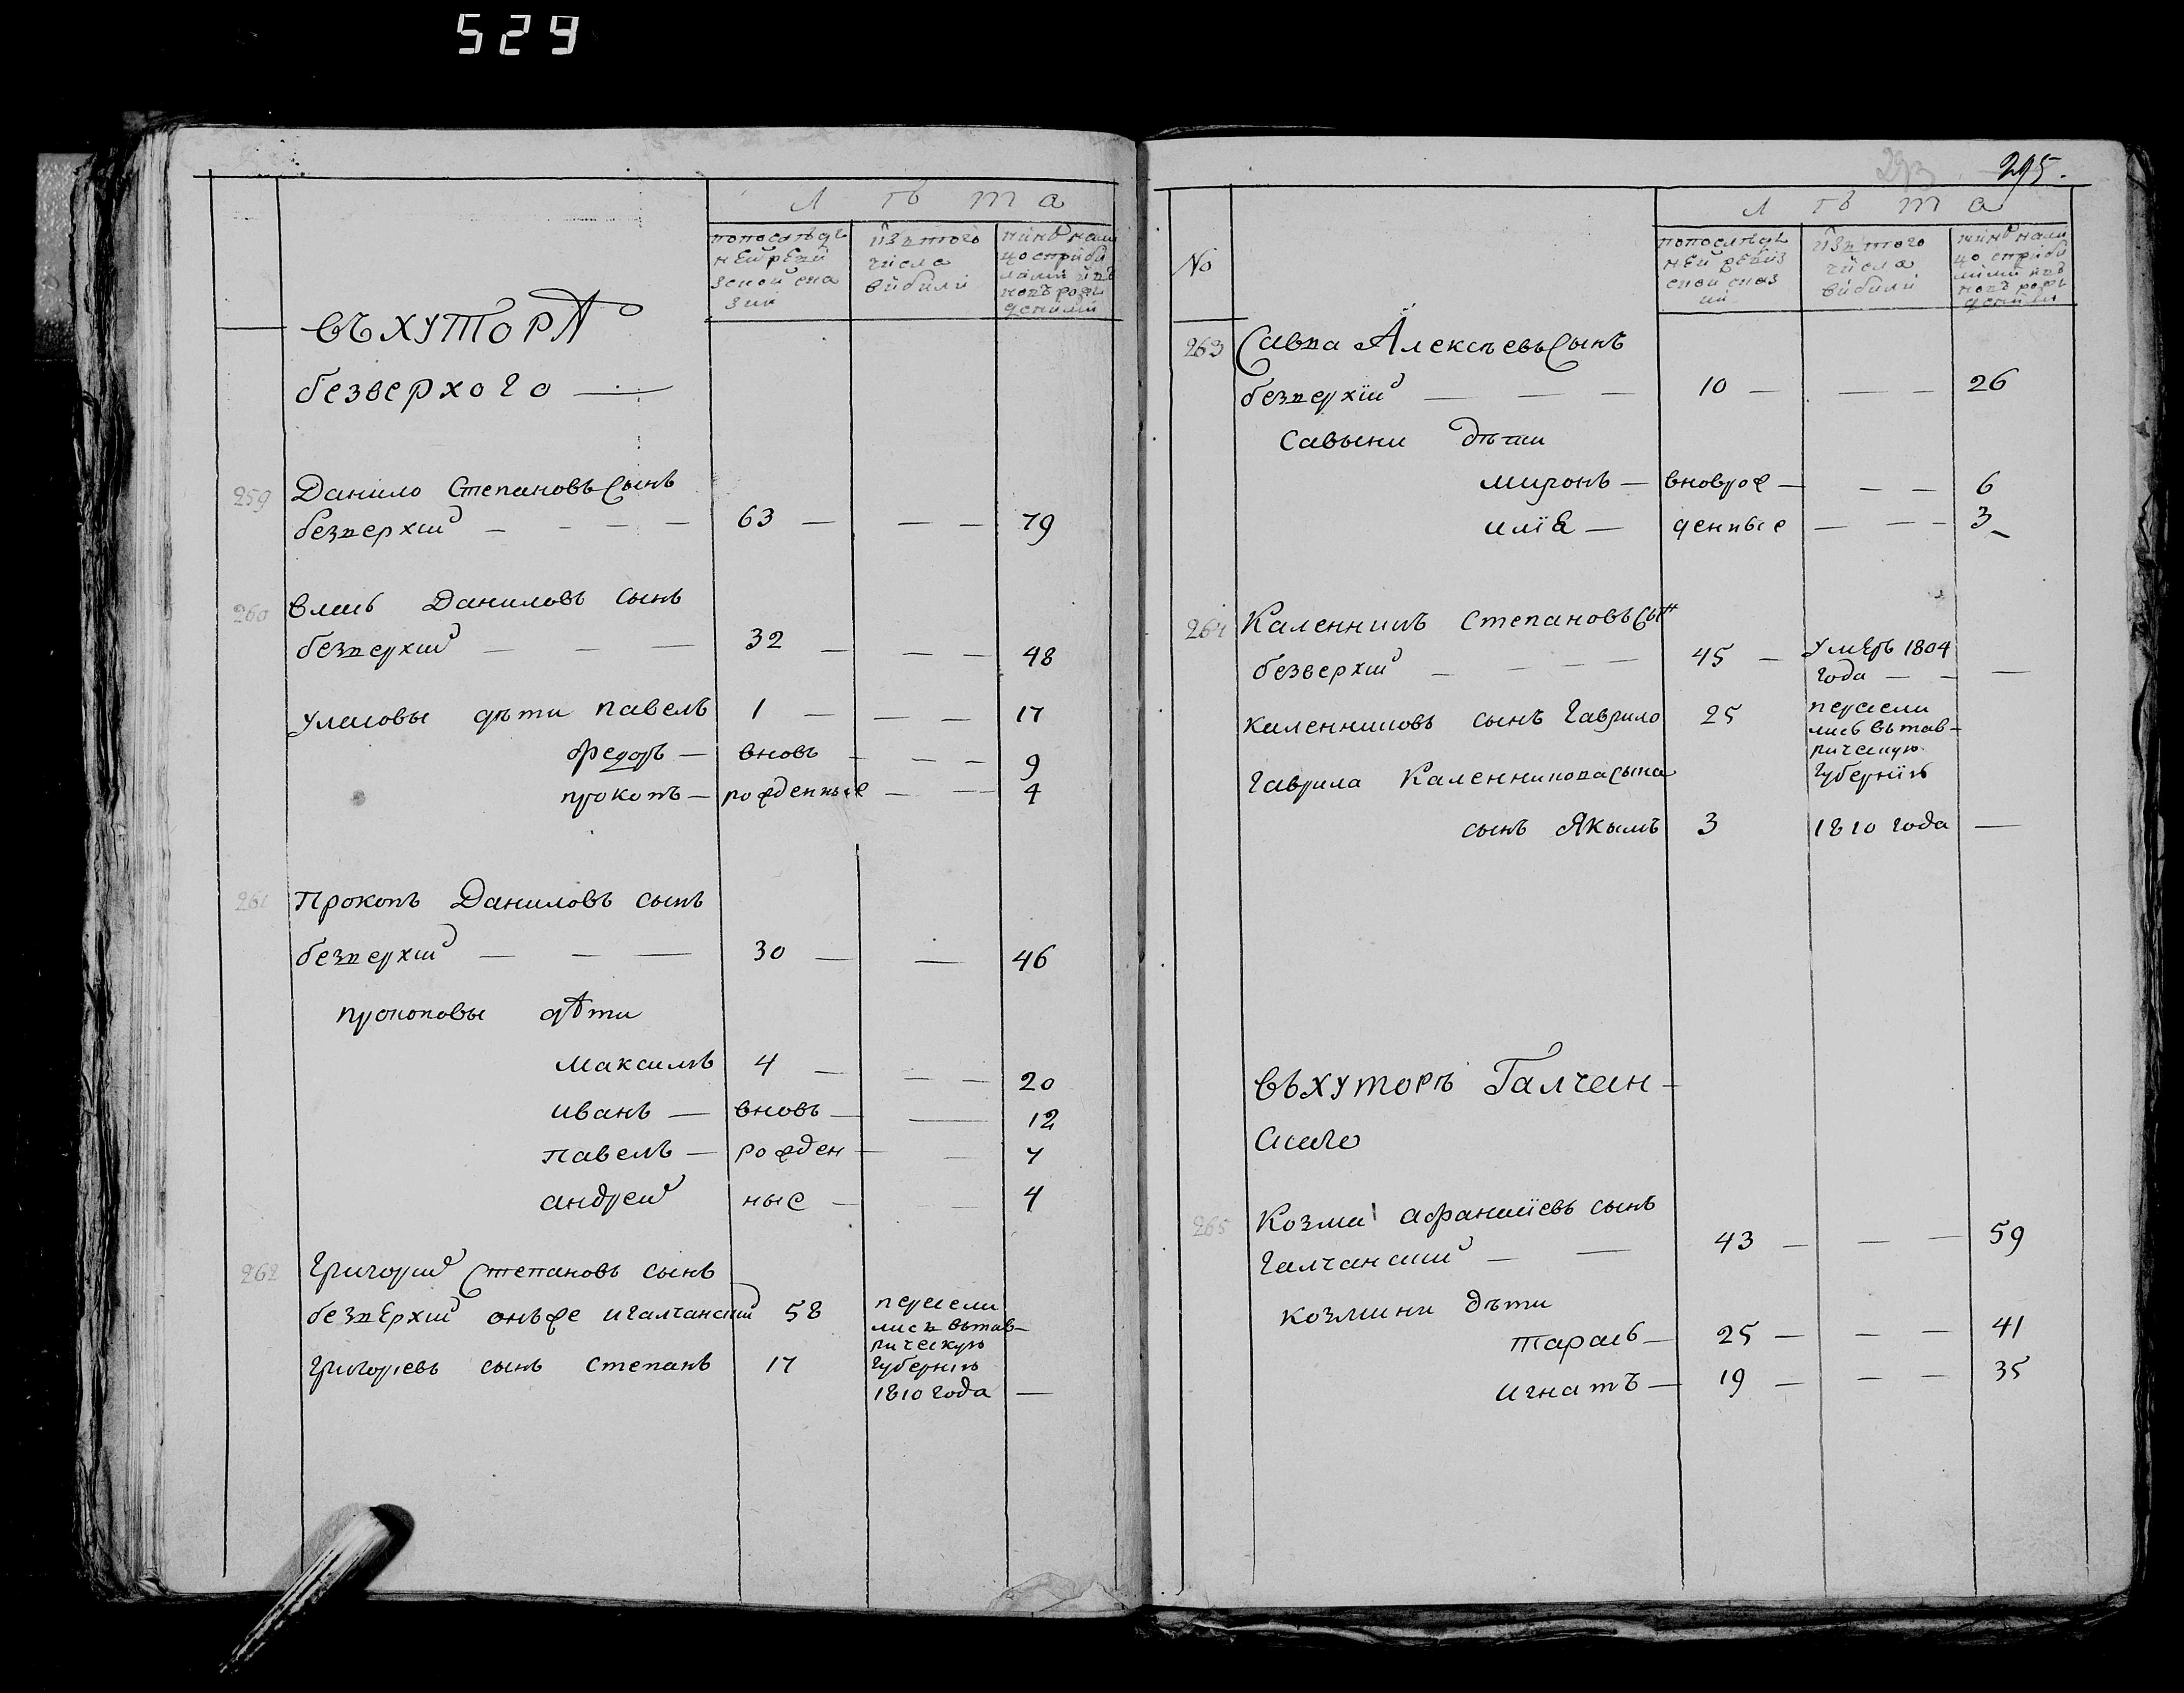 529
Л ѣ т а
попослѣд
ней реви
зской ска
зки
изътого
числа
выбыли
нине нали
цо сприбы
въ хуторѣ
безверхого —
259 Данило Степановъ Сынъ
безверхий — — — 63 — — — 79
260 Влась Даниловъ сынъ
безверхий — — — 32 — — — 48
Уласовы дѣти павелъ 1 — — — 17
Федоръ — вновь — — — 9
прокопъ — рожденные — — 4
261 Прокопъ Даниловъ сынъ
безверхий — — — 30 — — 46
прокоповы дѣти
Максимъ 4 — — — 20
иванъ — вновь — — 12
павелъ — рожден — — 7
андрей ные — — — 4
262 Григорий Степановъ сынъ
безверхий онъже игалчанский 58
Григориевъ сынъ Степанъ 17
пересели
лись вътав–
рическую
Губернию
1810 года —
293 295.
Л ѣ т а
No
попослѣд
ней ревиз
ской сказ
ки
изътого
числа
выбыли
нине нали
цо сприбы
263 Савва Алексѣевъ Сынъ
безверхий — — — 10 — — — 26
Савыни дѣти
миронъ — вноврож — — — 6
илїя — денные — — — 3
264 Каленникъ Степановъ Сын
безверхий — — — — 45 — Умеръ 1804
года — — —
каленниковъ сынъ Гаврило 25 пересели
лись вътав–
рическую
Губернїю
Гаврила Каленникова сына
сынъ Якымъ 3 1810 года —
въхуторѣ Галчан–
ского
265 Козма афанасїевъ сынъ
Галчанский — — 43 — — — 59
козмини дѣти
тарасъ — 25 — — — 41
игнатъ — 19 — — — 35